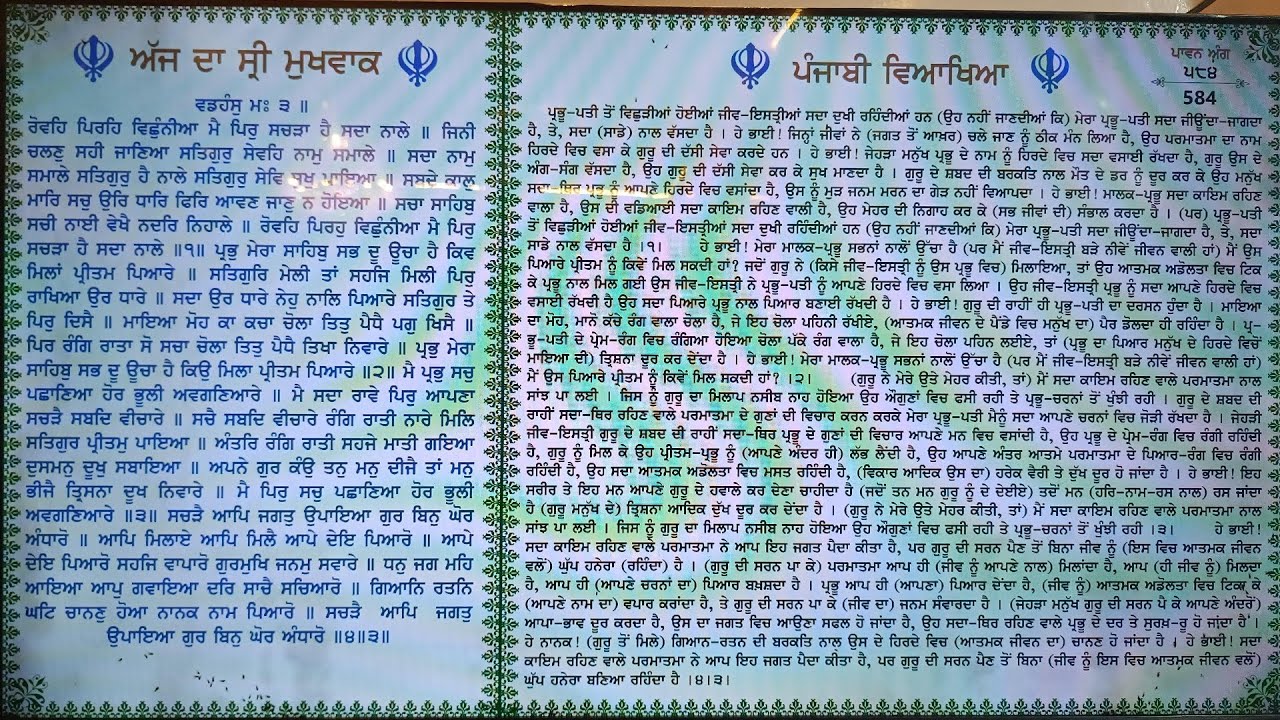 ਅੱਜ ਦਾ ਸ੍ਰੀ ਮੁਖਵਾਕ
ਵਡਹੰਸੁ ਮਃ ੩ ॥
ਰੋਵਹਿ ਪਿਰਹਿ ਵਿਛੁੰਨੀਆ ਮੈ ਪਿਰੁ ਸਚੜਾ ਹੈ ਸਦਾ ਨਾਲੇ ॥ ਜਿਨੀ
ਚਲਣੁ ਸਹੀ ਜਾਣਿਆ ਸਤਿਗੁਰੁ ਸੇਵਹਿ ਨਾਮੁ ਸਮਾਲੇ ॥ ਸਦਾ ਨਾਮੁ
ਸਮਾਲੇ ਸਤਿਗੁਰੁ ਹੈ ਨਾਲੇ ਸਤਿਗੁਰੁ ਸੇਵਿ ਸੁਖੁ ਪਾਇਆ ॥ ਸਬਦੇ ਕਾਲੁ
ਮਾਰਿ ਸਚੁ ਉਰਿ ਧਾਰਿ ਫਿਰਿ ਆਵਣ ਜਾਣੁ ਨ ਹੋਇਆ ॥ ਸਚਾ ਸਾਹਿਬੁ
ਸਚੀ ਨਾਈ ਵੇਖੈ ਨਦਰਿ ਨਿਹਾਲੇ ॥ ਰੋਵਹਿ ਪਿਰਹੁ ਵਿਛੁੰਨੀਆ ਮੈ ਪਿਰੁ
ਸਚੜਾ ਹੈ ਸਦਾ ਨਾਲੇ ॥੧॥ ਪ੍ਰਭੁ ਮੇਰਾ ਸਾਹਿਬੁ ਸਭ ਦੂ ਊਚਾ ਹੈ ਕਿਵ
ਮਿਲਾਂ ਪ੍ਰੀਤਮ ਪਿਆਰੇ ॥ ਸਤਿਗੁਰਿ ਮੇਲੀ ਤਾਂ ਸਹਜਿ ਮਿਲੀ ਪਿਰੁ
ਰਾਖਿਆ ਉਰ ਧਾਰੇ ॥ ਸਦਾ ਉਰ ਧਾਰੇ ਨੇਹੁ ਨਾਲਿ ਪਿਆਰੇ ਸਤਿਗੁਰ ਤੇ
ਪਿਰੁ ਦਿਸੈ ॥ ਮਾਇਆ ਮੋਹ ਕਾ ਕਚਾ ਚੋਲਾ ਤਿਤੁ ਪੈਧੈ ਪਗੁ ਖਿਸੈ ॥
ਪਿਰ ਰੰਗਿ ਰਾਤਾ ਸੋ ਸਚਾ ਚੋਲਾ ਤਿਤੁ ਪੈਧੈ ਤਿਖਾ ਨਿਵਾਰੇ ॥ ਪ੍ਰਭੁ ਮੇਰਾ
ਸਾਹਿਬੁ ਸਭ ਦੂ ਊਚਾ ਹੈ ਕਿਉ ਮਿਲਾ ਪ੍ਰੀਤਮ ਪਿਆਰੇ ॥੨॥ ਮੈ ਪ੍ਰਭੁ ਸਚੁ
ਪਛਾਣਿਆ ਹੋਰ ਭੂਲੀ ਅਵਗਣਿਆਰੇ ॥ ਮੈ ਸਦਾ ਰਾਵੇ ਪਿਰੁ ਆਪਣਾ
ਸਚੜੈ ਸਬਦਿ ਵੀਚਾਰੇ ॥ ਸਚੈ ਸਬਦਿ ਵੀਚਾਰੇ ਰੰਗਿ ਰਾਤੀ ਨਾਰੇ ਮਿਲਿ
ਸਤਿਗੁਰ ਪ੍ਰੀਤਮੁ ਪਾਇਆ ॥ ਅੰਤਰਿ ਰੰਗਿ ਰਾਤੀ ਸਹਜੇ ਮਾਤੀ ਗਇਆ
ਦੁਸਮਨੁ ਦੂਖੁ ਸਬਾਇਆ ॥ ਅਪਨੇ ਗੁਰ ਕੰਉ ਤਨੁ ਮਨੁ ਦੀਜੈ ਤਾਂ ਮਨੁ
ਭੀਜੈ ਤ੍ਰਿਸਨਾ ਦੂਖ ਨਿਵਾਰੇ ॥ ਮੈ ਪਿਰੁ ਸਚੁ ਪਛਾਣਿਆ ਹੋਰ ਭੂਲੀ
ਅਵਗਣਿਆਰੇ ॥੩॥ ਸਚੜੈ ਆਪਿ ਜਗਤੁ ਉਪਾਇਆ ਗੁਰ ਬਿਨੁ ਘੋਰ
ਅੰਧਾਰੋ ॥ ਆਪਿ ਮਿਲਾਏ ਆਪਿ ਮਿਲੈ ਆਪੇ ਦੇਇ ਪਿਆਰੋ ॥ ਆਪੇ
ਦੇਇ ਪਿਆਰੋ ਸਹਜਿ ਵਾਪਾਰੋ ਗੁਰਮੁਖਿ ਜਨਮੁ ਸਵਾਰੇ ॥ ਧਨੁ ਜਗ ਮਹਿ
ਆਇਆ ਆਪੁ ਗਵਾਇਆ ਦਰਿ ਸਾਚੈ ਸਚਿਆਰੋ ॥ ਗਿਆਨਿ ਰਤਨਿ
ਘਟਿ ਚਾਨਣੁ ਹੋਆ ਨਾਨਕ ਨਾਮ ਪਿਆਰੋ ॥ ਸਚੜੈ ਆਪਿ ਜਗਤੁ
ਉਪਾਇਆ ਗੁਰ ਬਿਨੁ ਘੋਰ ਅੰਧਾਰੋ ॥੪॥੩॥
ਪੰਜਾਬੀ ਵਿਆਖਿਆ
ਪਾਵਨ ਅੰਗ
੫੮੪
584
ਪ੍ਰਭੂ-ਪਤੀ ਤੋਂ ਵਿਛੁੜੀਆਂ ਹੋਈਆਂ ਜੀਵ-ਇਸਤ੍ਰੀਆਂ ਸਦਾ ਦੁਖੀ ਰਹਿੰਦੀਆਂ ਹਨ (ਉਹ ਨਹੀਂ ਜਾਣਦੀਆਂ ਕਿ) ਮੇਰਾ ਪ੍ਰਭੂ-ਪਤੀ ਸਦਾ ਜੀਊਂਦਾ-ਜਾਗਦਾ
ਹੈ, ਤੇ, ਸਦਾ (ਸਾਡੇ) ਨਾਲ ਵੱਸਦਾ ਹੈ । ਹੇ ਭਾਈ! ਜਿਨ੍ਹਾਂ ਜੀਵਾਂ ਨੇ (ਜਗਤ ਤੋਂ ਆਖ਼ਰ) ਚਲੇ ਜਾਣ ਨੂੰ ਠੀਕ ਮੰਨ ਲਿਆ ਹੈ, ਉਹ ਪਰਮਾਤਮਾ ਦਾ ਨਾਮ
ਹਿਰਦੇ ਵਿਚ ਵਸਾ ਕੇ ਗੁਰੂ ਦੀ ਦੱਸੀ ਸੇਵਾ ਕਰਦੇ ਹਨ । ਹੇ ਭਾਈ! ਜੇਹੜਾ ਮਨੁੱਖ ਪ੍ਰਭੂ ਦੇ ਨਾਮ ਨੂੰ ਹਿਰਦੇ ਵਿਚ ਸਦਾ ਵਸਾਈ ਰੱਖਦਾ ਹੈ, ਗੁਰੂ ਉਸ ਦੇ
ਅੰਗ-ਸੰਗ ਵੱਸਦਾ ਹੈ, ਉਹ ਗੁਰੂ ਦੀ ਦੱਸੀ ਸੇਵਾ ਕਰ ਕੇ ਸੁਖ ਮਾਣਦਾ ਹੈ । ਗੁਰੂ ਦੇ ਸ਼ਬਦ ਦੀ ਬਰਕਤਿ ਨਾਲ ਮੌਤ ਦੇ ਡਰ ਨੂੰ ਦੂਰ ਕਰ ਕੇ ਉਹ ਮਨੁੱਖ
ਸਦਾ-ਥਿਰ ਪ੍ਰਭੂ ਨੂੰ ਆਪਣੇ ਹਿਰਦੇ ਵਿਚ ਵਸਾਂਦਾ ਹੈ, ਉਸ ਨੂੰ ਮੁੜ ਜਨਮ ਮਰਨ ਦਾ ਗੇੜ ਨਹੀਂ ਵਿਆਪਦਾ । ਹੇ ਭਾਈ! ਮਾਲਕ-ਪ੍ਰਭੂ ਸਦਾ ਕਾਇਮ ਰਹਿਣ
ਵਾਲਾ ਹੈ, ਉਸ ਦੀ ਵਡਿਆਈ ਸਦਾ ਕਾਇਮ ਰਹਿਣ ਵਾਲੀ ਹੈ, ਉਹ ਮੇਹਰ ਦੀ ਨਿਗਾਹ ਕਰ ਕੇ (ਸਭ ਜੀਵਾਂ ਦੀ) ਸੰਭਾਲ ਕਰਦਾ ਹੈ । (ਪਰ) ਪ੍ਰਭੂ-ਪਤੀ
ਤੋਂ ਵਿਛੁੜੀਆਂ ਹੋਈਆਂ ਜੀਵ-ਇਸਤ੍ਰੀਆਂ ਸਦਾ ਦੁਖੀ ਰਹਿੰਦੀਆਂ ਹਨ (ਉਹ ਨਹੀਂ ਜਾਣਦੀਆਂ ਕਿ) ਮੇਰਾ ਪ੍ਰਭੂ-ਪਤੀ ਸਦਾ ਜੀਊਂਦਾ-ਜਾਗਦਾ ਹੈ, ਤੇ, ਸਦਾ
ਸਾਡੇ ਨਾਲ ਵੱਸਦਾ ਹੈ ।੧। ਹੇ ਭਾਈ! ਮੇਰਾ ਮਾਲਕ-ਪ੍ਰਭੂ ਸਭਨਾਂ ਨਾਲੋਂ ਉੱਚਾ ਹੈ (ਪਰ ਮੈਂ ਜੀਵ-ਇਸਤ੍ਰੀ ਬੜੇ ਨੀਵੇਂ ਜੀਵਨ ਵਾਲੀ ਹਾਂ) ਮੈਂ ਉਸ
ਪਿਆਰੇ ਪ੍ਰੀਤਮ ਨੂੰ ਕਿਵੇਂ ਮਿਲ ਸਕਦੀ ਹਾਂ? ਜਦੋਂ ਗੁਰੂ ਨੇ (ਕਿਸੇ ਜੀਵ-ਇਸਤ੍ਰੀ ਨੂੰ ਉਸ ਪ੍ਰਭੂ ਵਿਚ) ਮਿਲਾਇਆ, ਤਾਂ ਉਹ ਆਤਮਕ ਅਡੋਲਤਾ ਵਿਚ ਟਿਕ
ਕੇ ਪ੍ਰਭੂ ਨਾਲ ਮਿਲ ਗਈ ਉਸ ਜੀਵ-ਇਸਤ੍ਰੀ ਨੇ ਪ੍ਰਭੂ-ਪਤੀ ਨੂੰ ਆਪਣੇ ਹਿਰਦੇ ਵਿਚ ਵਸਾ ਲਿਆ । ਉਹ ਜੀਵ-ਇਸਤ੍ਰੀ ਪ੍ਰਭੂ ਨੂੰ ਸਦਾ ਆਪਣੇ ਹਿਰਦੇ ਵਿਚ
ਵਸਾਈ ਰੱਖਦੀ ਹੈ ਉਹ ਸਦਾ ਪਿਆਰੇ ਪ੍ਰਭੂ ਨਾਲ ਪਿਆਰ ਬਣਾਈ ਰੱਖਦੀ ਹੈ । ਹੇ ਭਾਈ! ਗੁਰੂ ਦੀ ਰਾਹੀਂ ਹੀ ਪ੍ਰਭੂ-ਪਤੀ ਦਾ ਦਰਸਨ ਹੁੰਦਾ ਹੈ । ਮਾਇਆ
ਦਾ ਮੋਹ, ਮਾਨੋ ਕੱਚੇ ਰੰਗ ਵਾਲਾ ਚੋਲਾ ਹੈ, ਜੇ ਇਹ ਚੋਲਾ ਪਹਿਨੀ ਰੱਖੀਏ, (ਆਤਮਕ ਜੀਵਨ ਦੇ ਪੈਂਡੇ ਵਿਚ ਮਨੁੱਖ ਦਾ) ਪੈਰ ਡੋਲਦਾ ਹੀ ਰਹਿੰਦਾ ਹੈ । ਪ੍ਰ-
ਭੂ-ਪਤੀ ਦੇ ਪ੍ਰੇਮ-ਰੰਗ ਵਿਚ ਰੰਗਿਆ ਹੋਇਆ ਚੋਲਾ ਪੱਕੇ ਰੰਗ ਵਾਲਾ ਹੈ, ਜੇ ਇਹ ਚੋਲਾ ਪਹਿਨ ਲਈਏ, ਤਾਂ (ਪ੍ਰਭੂ ਦਾ ਪਿਆਰ ਮਨੁੱਖ ਦੇ ਹਿਰਦੇ ਵਿਚੋਂ
ਮਾਇਆ ਦੀ) ਤ੍ਰਿਸ਼ਨਾ ਦੂਰ ਕਰ ਦੇਂਦਾ ਹੈ । ਹੇ ਭਾਈ! ਮੇਰਾ ਮਾਲਕ-ਪ੍ਰਭੂ ਸਭਨਾਂ ਨਾਲੋਂ ਉੱਚਾ ਹੈ (ਪਰ ਮੈਂ ਜੀਵ-ਇਸਤ੍ਰੀ ਬੜੇ ਨੀਵੇਂ ਜੀਵਨ ਵਾਲੀ ਹਾਂ)
ਮੈਂ ਉਸ ਪਿਆਰੇ ਪ੍ਰੀਤਮ ਨੂੰ ਕਿਵੇਂ ਮਿਲ ਸਕਦੀ ਹਾਂ? ।੨। (ਗੁਰੂ ਨੇ ਮੇਰੇ ਉਤੇ ਮੇਹਰ ਕੀਤੀ, ਤਾਂ) ਮੈਂ ਸਦਾ ਕਾਇਮ ਰਹਿਣ ਵਾਲੇ ਪਰਮਾਤਮਾ ਨਾਲ
ਸਾਂਝ ਪਾ ਲਈ । ਜਿਸ ਨੂੰ ਗੁਰੂ ਦਾ ਮਿਲਾਪ ਨਸੀਬ ਨਾਹ ਹੋਇਆ ਉਹ ਔਗੁਣਾਂ ਵਿਚ ਫਸੀ ਰਹੀ ਤੇ ਪ੍ਰਭੂ-ਚਰਨਾਂ ਤੋਂ ਖੁੰਝੀ ਰਹੀ । ਗੁਰੂ ਦੇ ਸ਼ਬਦ ਦੀ
ਰਾਹੀਂ ਸਦਾ-ਥਿਰ ਰਹਿਣ ਵਾਲੇ ਪਰਮਾਤਮਾ ਦੇ ਗੁਣਾਂ ਦੀ ਵਿਚਾਰ ਕਰਨ ਕਰਕੇ ਮੇਰਾ ਪ੍ਰਭੂ-ਪਤੀ ਮੈਨੂੰ ਸਦਾ ਆਪਣੇ ਚਰਨਾਂ ਵਿਚ ਜੋੜੀ ਰੱਖਦਾ ਹੈ । ਜੇਹੜੀ
ਜੀਵ-ਇਸਤ੍ਰੀ ਗੁਰੂ ਦੇ ਸ਼ਬਦ ਦੀ ਰਾਹੀਂ ਸਦਾ-ਥਿਰ ਪ੍ਰਭੂ ਦੇ ਗੁਣਾਂ ਦੀ ਵਿਚਾਰ ਆਪਣੇ ਮਨ ਵਿਚ ਵਸਾਂਦੀ ਹੈ, ਉਹ ਪ੍ਰਭੂ ਦੇ ਪ੍ਰੇਮ-ਰੰਗ ਵਿਚ ਰੰਗੀ ਰਹਿੰਦੀ
ਹੈ, ਗੁਰੂ ਨੂੰ ਮਿਲ ਕੇ ਉਹ ਪ੍ਰੀਤਮ-ਪ੍ਰਭੂ ਨੂੰ (ਆਪਣੇ ਅੰਦਰ ਹੀ) ਲੱਭ ਲੈਂਦੀ ਹੈ, ਉਹ ਆਪਣੇ ਅੰਤਰ ਆਤਮੇ ਪਰਮਾਤਮਾ ਦੇ ਪਿਆਰ-ਰੰਗ ਵਿਚ ਰੰਗੀ
ਰਹਿੰਦੀ ਹੈ, ਉਹ ਸਦਾ ਆਤਮਕ ਅਡੋਲਤਾ ਵਿਚ ਮਸਤ ਰਹਿੰਦੀ ਹੈ, (ਵਿਕਾਰ ਆਦਿਕ ਉਸ ਦਾ) ਹਰੇਕ ਵੈਰੀ ਤੇ ਦੁੱਖ ਦੂਰ ਹੋ ਜਾਂਦਾ ਹੈ । ਹੇ ਭਾਈ! ਇਹ
ਸਰੀਰ ਤੇ ਇਹ ਮਨ ਆਪਣੇ ਗੁਰੂ ਦੇ ਹਵਾਲੇ ਕਰ ਦੇਣਾ ਚਾਹੀਦਾ ਹੈ (ਜਦੋਂ ਤਨ ਮਨ ਗੁਰੂ ਨੂੰ ਦੇ ਦੇਈਏ) ਤਦੋਂ ਮਨ (ਹਰਿ-ਨਾਮ-ਰਸ ਨਾਲ) ਰਸ ਜਾਂਦਾ
ਹੈ (ਗੁਰੂ ਮਨੁੱਖ ਦੇ) ਤ੍ਰਿਸ਼ਨਾ ਆਦਿਕ ਦੁੱਖ ਦੂਰ ਕਰ ਦੇਂਦਾ ਹੈ । (ਗੁਰੂ ਨੇ ਮੇਰੇ ਉਤੇ ਮੇਹਰ ਕੀਤੀ, ਤਾਂ) ਮੈਂ ਸਦਾ ਕਾਇਮ ਰਹਿਣ ਵਾਲੇ ਪਰਮਾਤਮਾ ਨਾਲ
ਸਾਂਝ ਪਾ ਲਈ । ਜਿਸ ਨੂੰ ਗੁਰੂ ਦਾ ਮਿਲਾਪ ਨਸੀਬ ਨਾਹ ਹੋਇਆ ਉਹ ਔਗੁਣਾਂ ਵਿਚ ਫਸੀ ਰਹੀ ਤੇ ਪ੍ਰਭੂ-ਚਰਨਾਂ ਤੋਂ ਖੁੰਝੀ ਰਹੀ ।੩। ਹੇ ਭਾਈ!
ਸਦਾ ਕਾਇਮ ਰਹਿਣ ਵਾਲੇ ਪਰਮਾਤਮਾ ਨੇ ਆਪ ਇਹ ਜਗਤ ਪੈਦਾ ਕੀਤਾ ਹੈ, ਪਰ ਗੁਰੂ ਦੀ ਸਰਨ ਪੈਣ ਤੋਂ ਬਿਨਾ ਜੀਵ ਨੂੰ (ਇਸ ਵਿਚ ਆਤਮਕ ਜੀਵਨ
ਵਲੋਂ) ਘੁੱਪ ਹਨੇਰਾ (ਰਹਿੰਦਾ) ਹੈ । (ਗੁਰੂ ਦੀ ਸਰਨ ਪਾ ਕੇ) ਪਰਮਾਤਮਾ ਆਪ ਹੀ (ਜੀਵ ਨੂੰ ਆਪਣੇ ਨਾਲ) ਮਿਲਾਂਦਾ ਹੈ, ਆਪ (ਹੀ ਜੀਵ ਨੂੰ) ਮਿਲਦਾ
ਹੈ, ਆਪ ਹੀ (ਆਪਣੇ ਚਰਨਾਂ ਦਾ) ਪਿਆਰ ਬਖ਼ਸ਼ਦਾ ਹੈ । ਪ੍ਰਭੂ ਆਪ ਹੀ (ਆਪਣਾ) ਪਿਆਰ ਦੇਂਦਾ ਹੈ, (ਜੀਵ ਨੂੰ) ਆਤਮਕ ਅਡੋਲਤਾ ਵਿਚ ਟਿਕਾ ਕੇ
(ਆਪਣੇ ਨਾਮ ਦਾ) ਵਪਾਰ ਕਰਾਂਦਾ ਹੈ, ਤੇ ਗੁਰੂ ਦੀ ਸਰਨ ਪਾ ਕੇ (ਜੀਵ ਦਾ) ਜਨਮ ਸੰਵਾਰਦਾ ਹੈ । (ਜੇਹੜਾ ਮਨੁੱਖ ਗੁਰੂ ਦੀ ਸਰਨ ਪੈ ਕੇ ਆਪਣੇ ਅੰਦਰੋਂ)
ਆਪਾ-ਭਾਵ ਦੂਰ ਕਰਦਾ ਹੈ, ਉਸ ਦਾ ਜਗਤ ਵਿਚ ਆਉਣਾ ਸਫਲ ਹੋ ਜਾਂਦਾ ਹੈ, ਉਹ ਸਦਾ-ਥਿਰ ਰਹਿਣ ਵਾਲੇ ਪ੍ਰਭੂ ਦੇ ਦਰ ਤੇ ਸੁਰਖ਼-ਰੂ ਹੋ ਜਾਂਦਾ ਹੈ ।
ਹੇ ਨਾਨਕ! (ਗੁਰੂ ਤੋਂ ਮਿਲੇ) ਗਿਆਨ-ਰਤਨ ਦੀ ਬਰਕਤਿ ਨਾਲ ਉਸ ਦੇ ਹਿਰਦੇ ਵਿਚ (ਆਤਮਕ ਜੀਵਨ ਦਾ) ਚਾਨਣ ਹੋ ਜਾਂਦਾ ਹੈ । ਹੇ ਭਾਈ! ਸਦਾ
ਕਾਇਮ ਰਹਿਣ ਵਾਲੇ ਪਰਮਾਤਮਾ ਨੇ ਆਪ ਇਹ ਜਗਤ ਪੈਦਾ ਕੀਤਾ ਹੈ, ਪਰ ਗੁਰੂ ਦੀ ਸਰਨ ਪੈਣ ਤੋਂ ਬਿਨਾ (ਜੀਵ ਨੂੰ ਇਸ ਵਿਚ ਆਤਮਕ ਜੀਵਨ ਵਲੋਂ)
ਘੁੱਪ ਹਨੇਰਾ ਬਣਿਆ ਰਹਿੰਦਾ ਹੈ ।੪।੩।